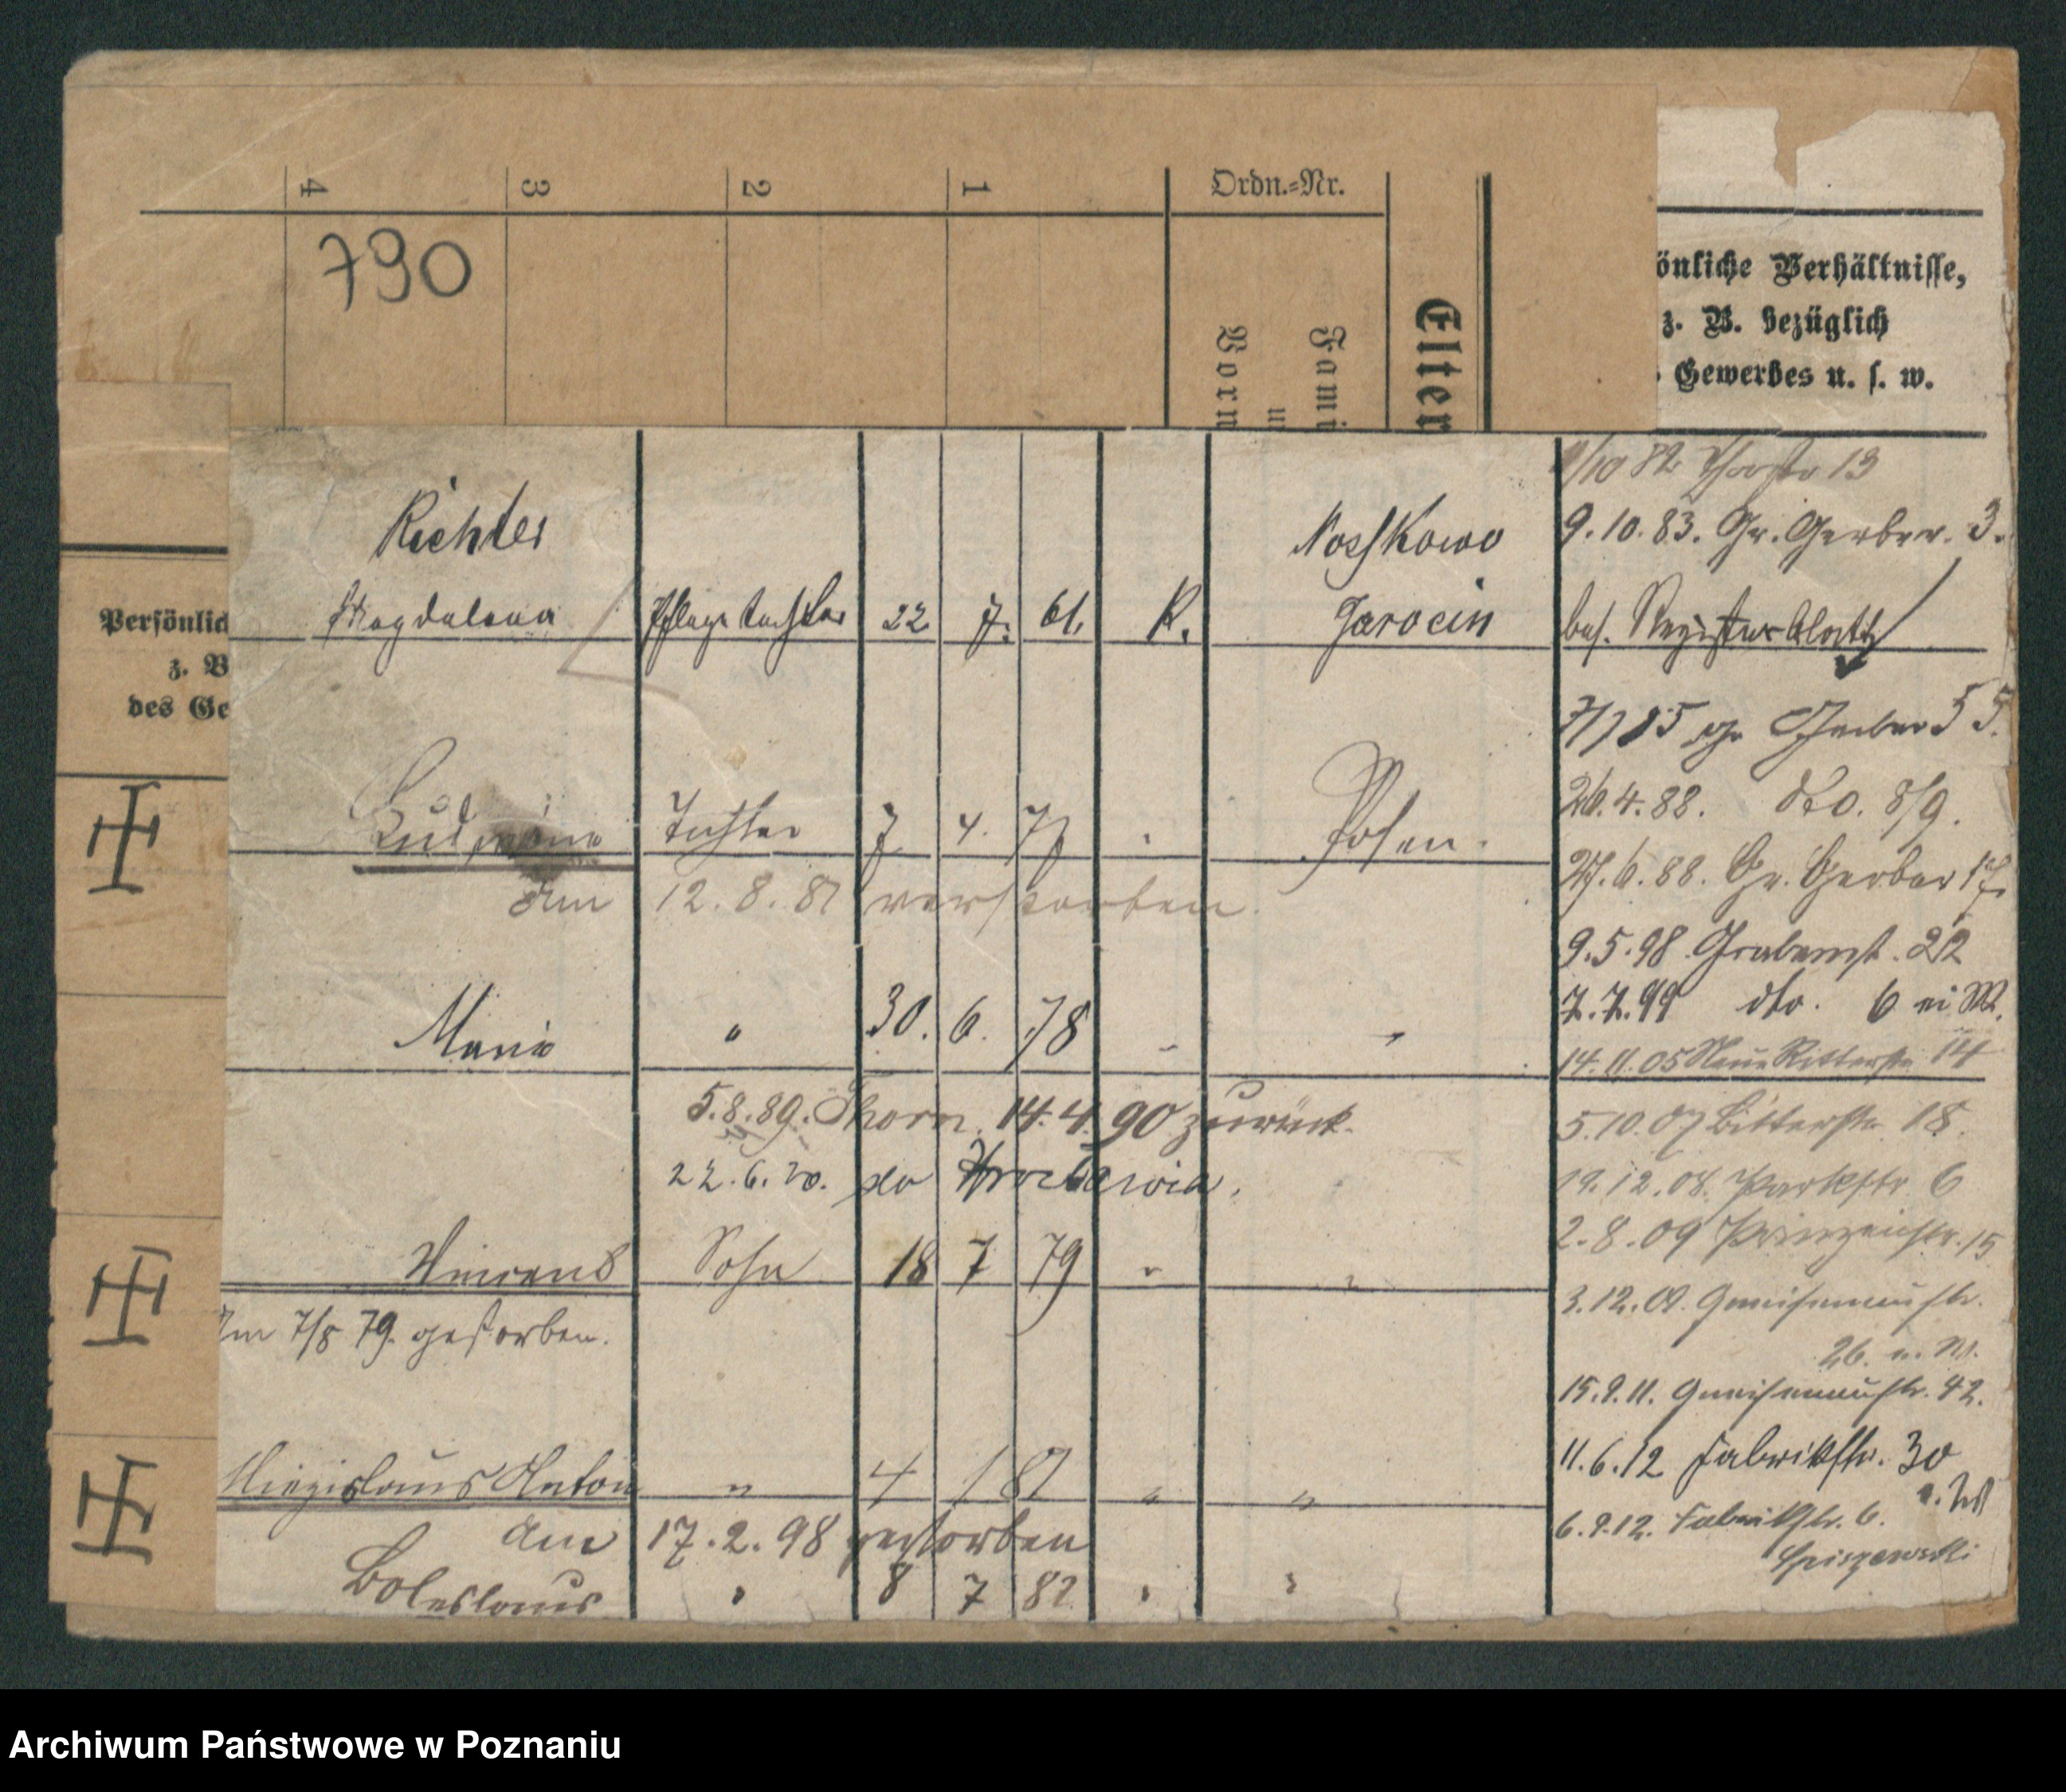 4 3 2 1 Ordn.-Nr.
790
Elter
Fami
u
Vorn
önliche Verhältnisse,
z. B. bezüglich
Gewerbes u. s. w.
Persönlic
z. B
des Ge
Richter
Magdalena Pflegetochter 22 7. 61. K. Nosskowo
Jarocin
Tochter 7 4. 77 Posen.
Am 12.8.81 verstorben.
Maria " 30. 6. 78
5.8.89. Thorn. 14.4.90 zurück.
22.6.20. do Wrocławia.
Vincens Sohn 18 7 79
Am 7/8 79. gestorben.
Miezislaus Anton " 4 1 81 " "
Am 17.2.98 gestorben
Boleslaus " 8 7 82 " "
/10 82 13
9.10.83. Gr. Gerber. 3.
bes.
7/7 85 gr Gerber
26.4.88. dto. 8/9.
27.6.88. Gr. Gerber 17.
9.5.98. Grabenst. 22
7.7.99 dto. 6 m.
14.11.05 Neue Ritterstr 14
5.10.07 Bitterstr. 18.
19.12.08. Parkstr. 6
2.8.09 Prinzenstr. 15
3.12.09. Gneisenaustr.
26.
15.9.11. Gneisenaustr. 42.
11.6.12 Fabrikstr. 30
6.9.12. Fabrikstr. 6.
Archiwum Państwowe w Poznaniu